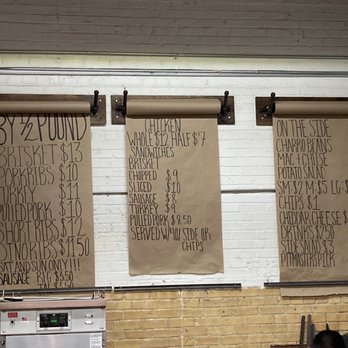 BY 1/2 POUND
BRISKET $13
PORK RIBS $10
TURKEY $11
PULLED PORK $10
SHORT RIBS $12
$11.50
SAT AND SUN ONLY!!
SAUSAGE $3.50
CHICKEN
WHOLE $12 HALF $7
SANDWICHES
BRISKET
CHOPPED $9
SLICED $10
SAUSAGE $8
TURKEY $9
PULLED PORK $8.50
SERVED W/ 4OZ SIDE OR
CHIPS
ON THE SIDE
CHARRO BEANS
MAC & CHEESE
POTATO SALAD
SM $2 M $5 LG
CHIPS $1
CHEDDAR CHEESE
DRINKS $2.50
SIDE SALAD $3